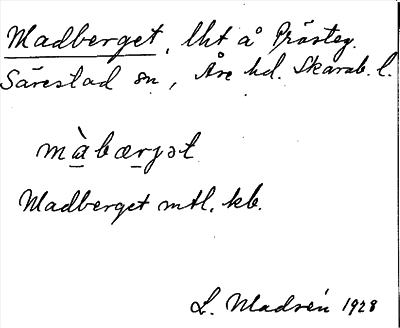 Madberget, lht å Prästeg.
Särestad sn, Åse hd. Skarab. l.
màbærjət
Madberget mtl. kb.
L. Madsén 1928